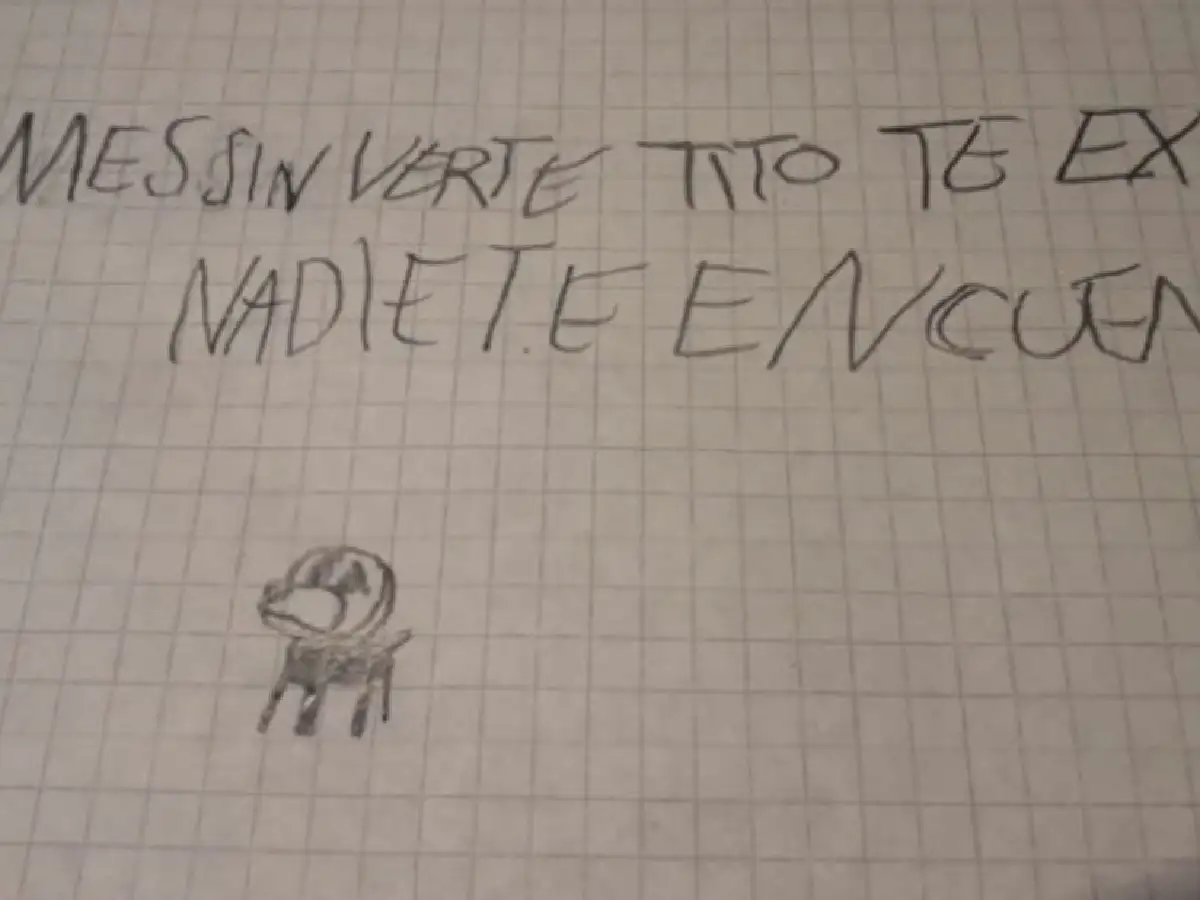 MES SIN VERTE TITO TE EX
NADIE TE ENCUEN